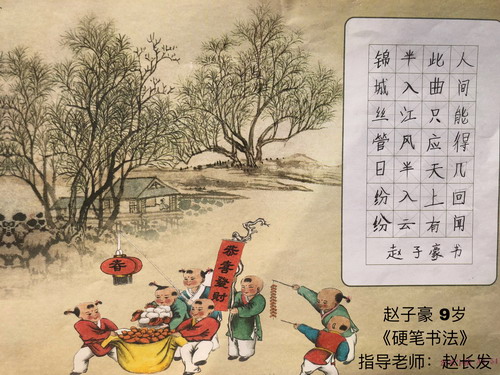 锦城丝管日纷纷
半入江风半入云
此曲只应天上有
人间能得几回闻
赵子豪书
恭喜發財
春
赵子豪 9岁
《硬笔书法》
指导老师：赵长发